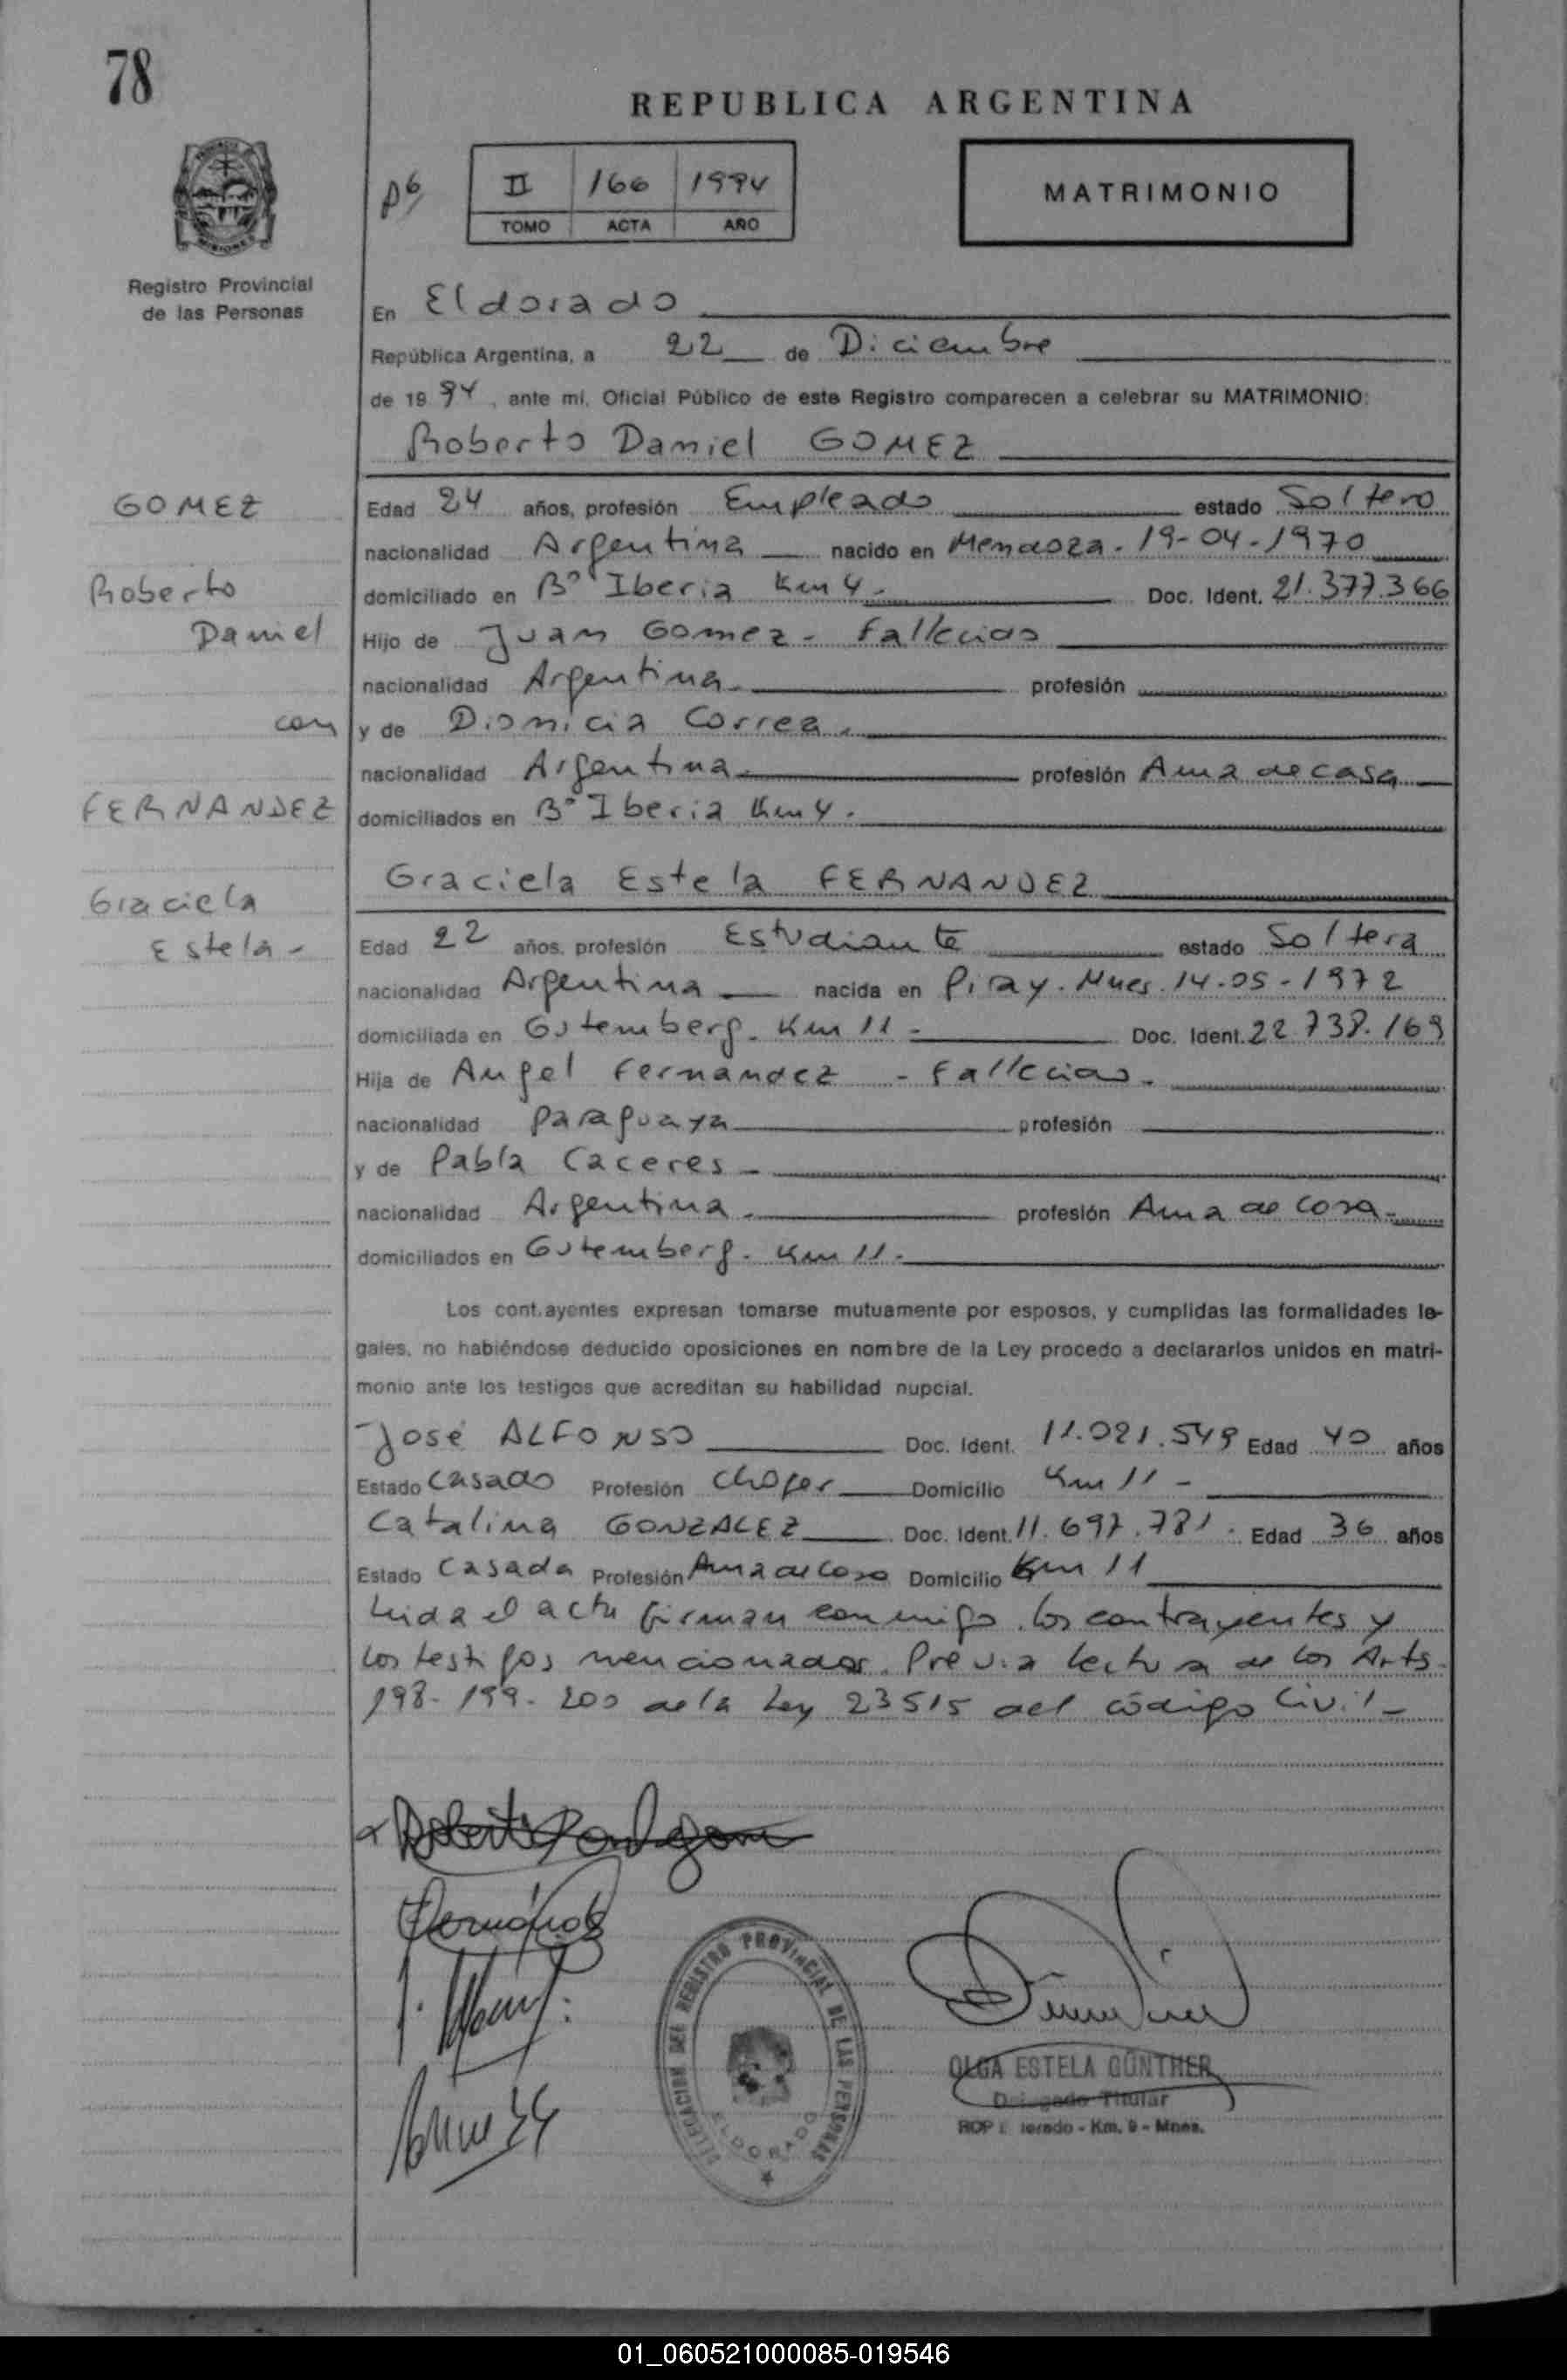 78
REPUBLICA ARGENTINA
II 166 1994
TOMO ACTA AÑO
MATRIMONIO
Registro Provincial
de las Personas
En Eldorado
República Argentina, a 22 de Diciembre
de 1994, ante mí, Oficial Público de este Registro comparecen a celebrar su MATRIMONIO:
Roberto Daniel GOMEZ
GOMEZ
Roberto
Daniel
con
FERNANDEZ
Graciela
Estela -
Edad 24 años, profesión Empleado estado Soltero
nacionalidad Argentina nacido en Mendoza - 19-04-1970
domiciliado en B° Iberia Km 4 - Doc. Ident. 21.377.366
Hijo de Juan Gomez - Fallecido
nacionalidad Argentina - profesión
y de Dionicia Correa.
nacionalidad Argentina - profesión Ama de casa
domiciliados en B° Iberia Km 4.
Graciela Estela FERNANDEZ
Edad 22 años, profesión Estudiante estado Soltera
nacionalidad Argentina nacida en Piray - Mnes. 14-05-1972
domiciliada en Gutemberg - Km 11 - Doc. Ident. 22.738.169
Hija de Angel Fernandez - Fallecido -
nacionalidad paraguaya profesión
y de Pabla Caceres -
nacionalidad Argentina - profesión Ama de casa -
domiciliados en Gutemberg - Km 11 -
Los contrayentes expresan tomarse mutuamente por esposos, y cumplidas las formalidades le-
gales, no habiéndose deducido oposiciones en nombre de la Ley procedo a declararlos unidos en matri-
monio ante los testigos que acreditan su habilidad nupcial.
José ALFONSO Doc. Ident. 11.021.549 Edad 40 años
Estado Casado Profesión Chofer Domicilio Km 11 -
Catalina GONZALEZ Doc. Ident. 11.697.781 - Edad 36 años
Estado Casada Profesión Ama de Casa Domicilio Km 11
Leida el acta firman conmigo los contrayentes y
los testigos mencionados. Previa lectura de los Arts
198- 199- 200 de la Ley 23515 del código Civil -
Fernández
DELEGACION DEL REGISTRO PROVINCIAL DE LAS PERSONAS
ELDORADO
OLGA ESTELA GÜNTHER
Delegado Titular
Km. 9 - Mnes.
01_060521000085-019546